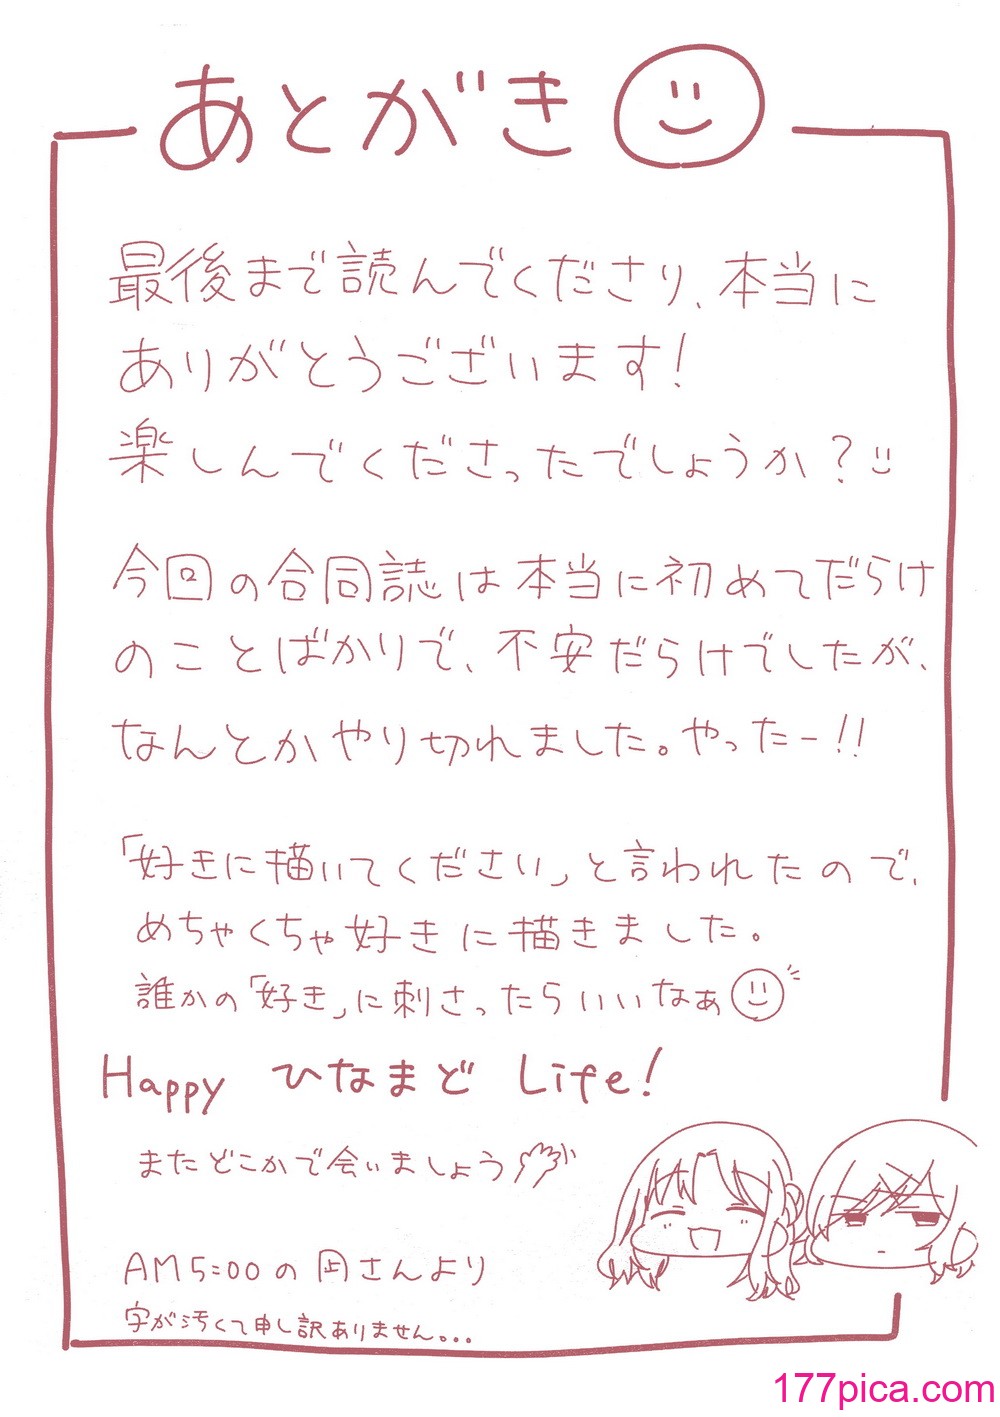 あとがき
最後まで読んでくださり、本当に
ありがとうございます!
楽しんでくださったでしょうか?
今回の合同誌は本当に初めてだらけ
のことばかりで、不安だらけでしたが、
なんとかやり切れました。やったー!!
「好きに描いてください」と言われたので、
めちゃくちゃ好きに描きました。
誰かの「好き」に刺さったらいいなぁ
Happy ひなまど Life!
またどこかで会いましょう
AM5:00の岡さんより
字が汚くて申し訳ありません。。。
177pica.com